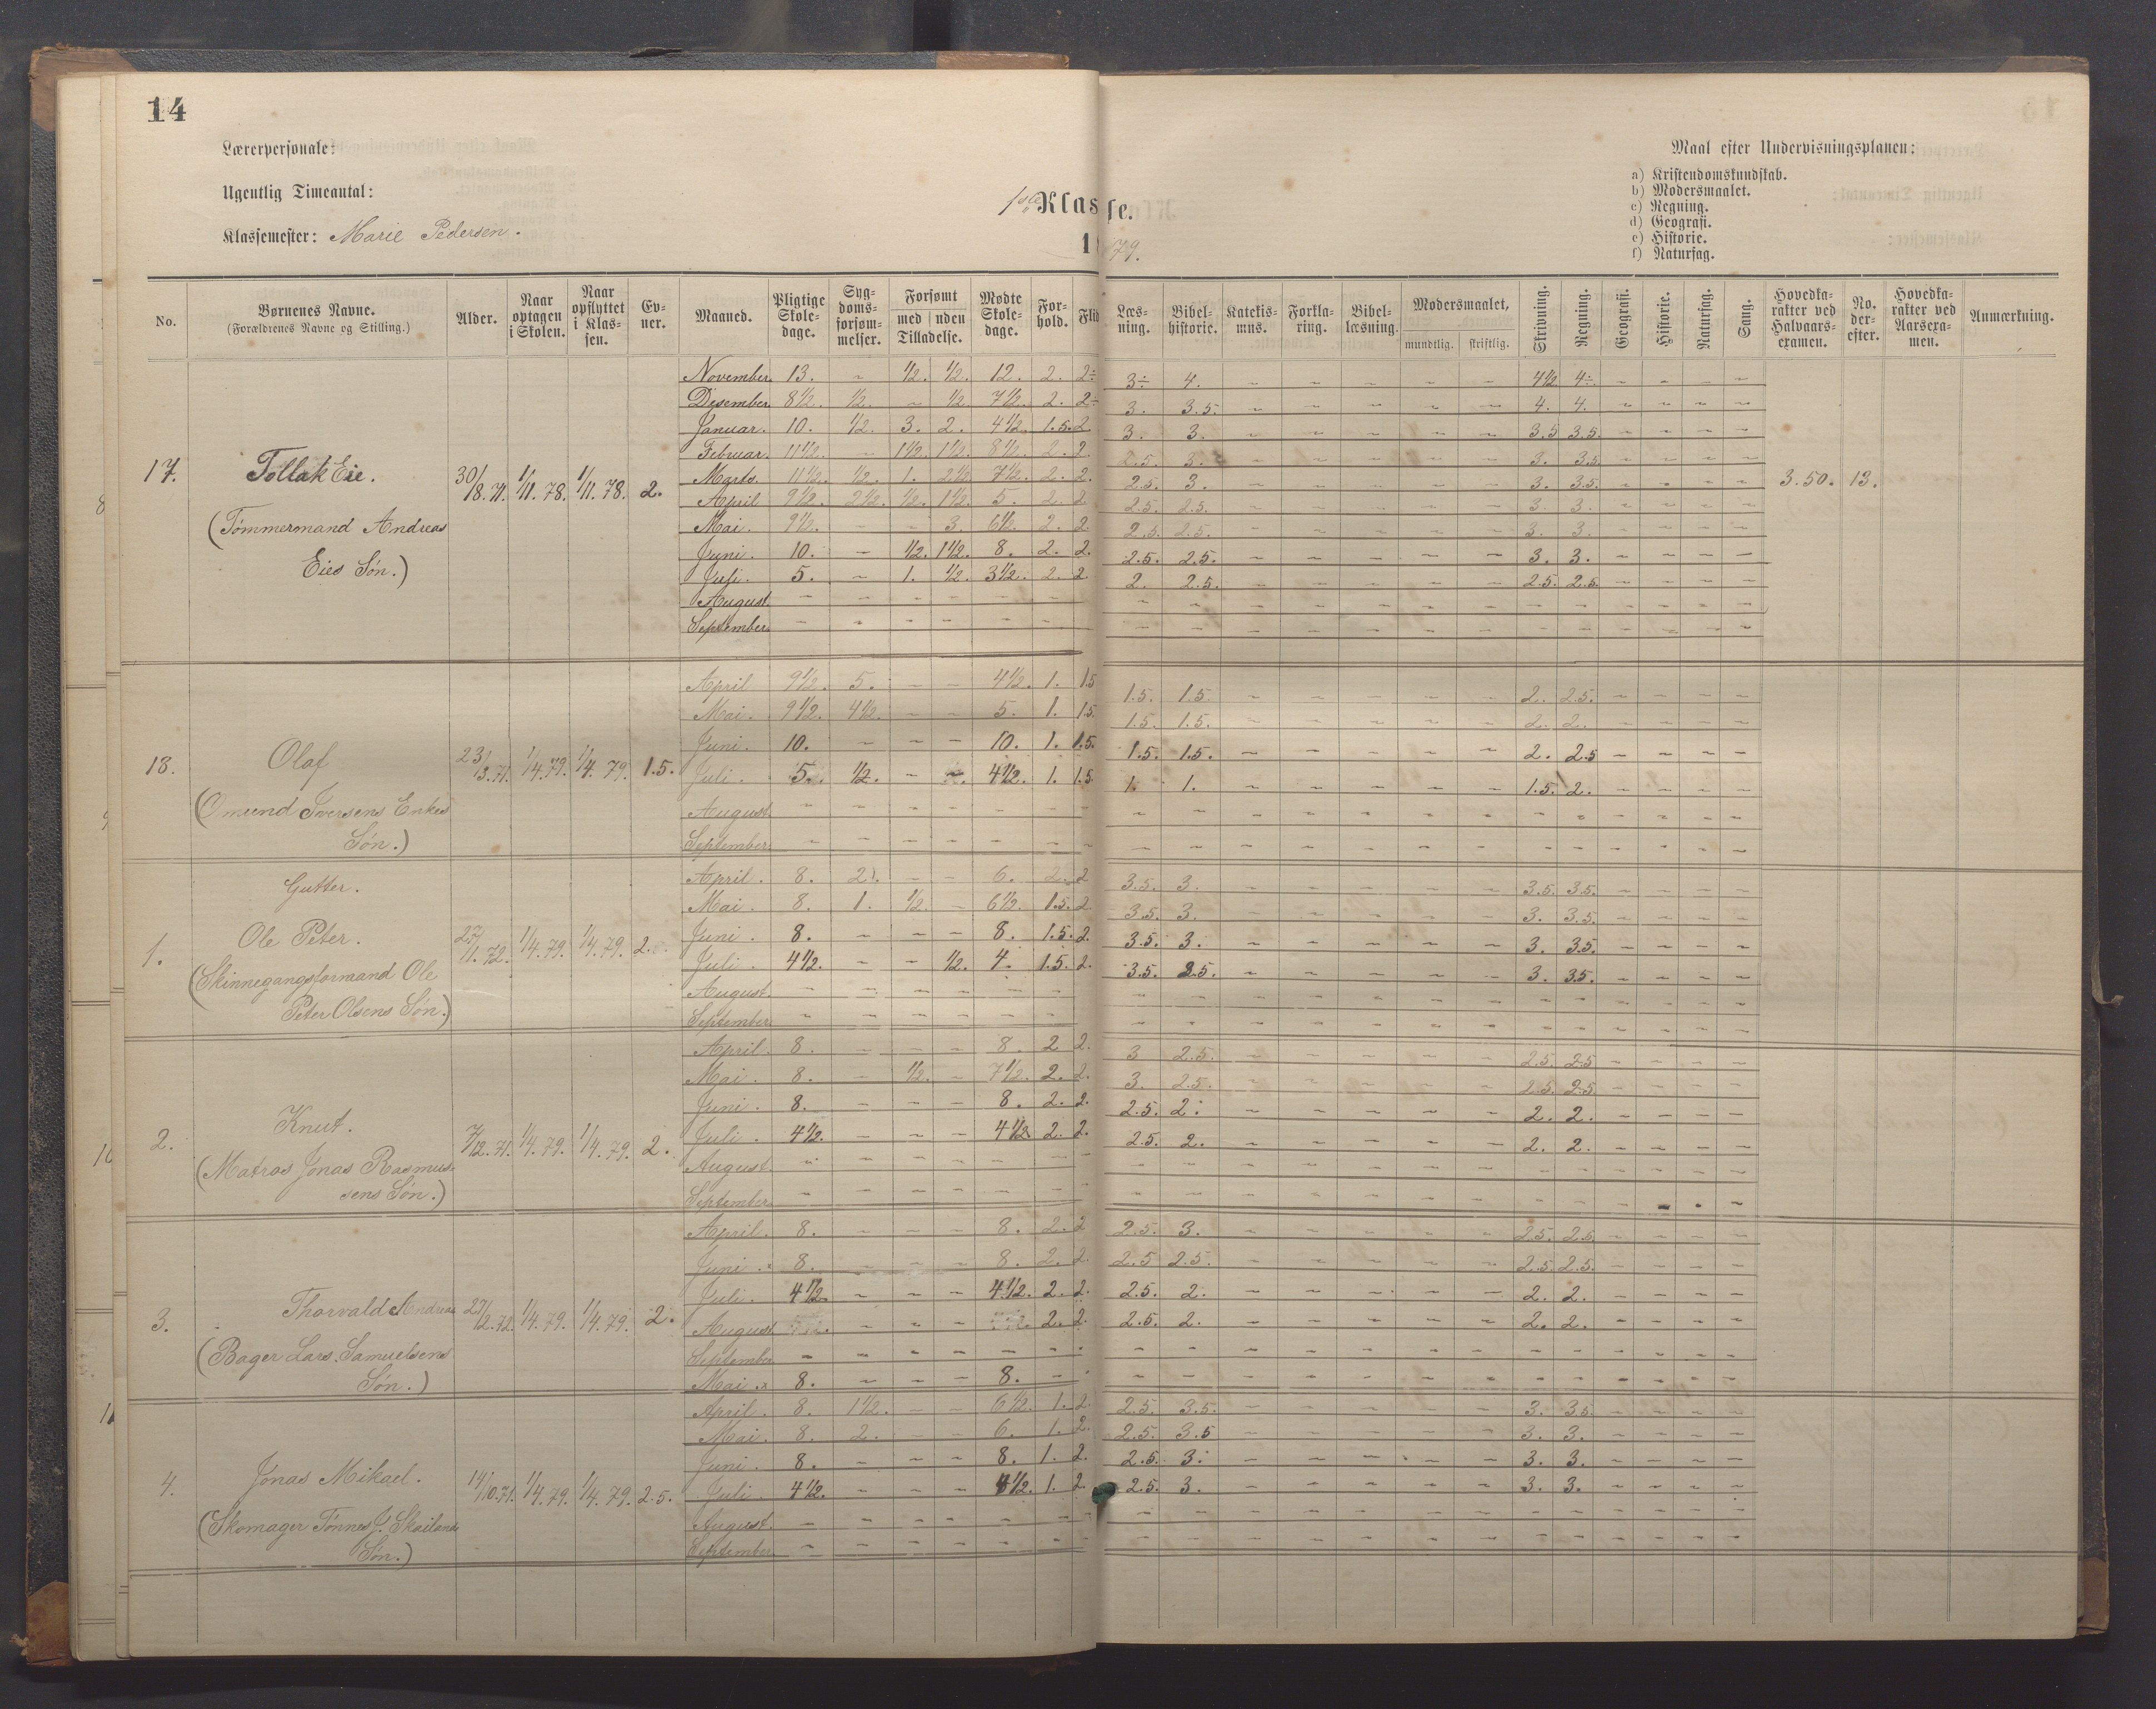 14
Lærerpersonale:
Ugentlig Timeantal:
Klassemester: Marie Pedersen.
1ste Klasse.
1879.
Maal efter Undervisningsplanen:
a) Kristendomskundskab.
b) Modersmaalet.
c) Regning.
d) Geografi.
e) Historie.
f) Naturfag.
No. | Børnenes Navne. (Forældrenes Navne og Stilling.) | Alder. | Naar optagen i Skolen. | Naar opflyttet i Klassen. | Evner. | Maaned. | Pligtige Skoledage. | Sygdomsforsømmelser. | Forsømt med Tilladelse. | uden Tilladelse. | Mødte Skoledage. | Forhold. | Flid | Læsning. | Bibelhistorie. | Katekismus. | Forklaring. | Bibellæsning. | Modersmaalet, mundtlig. | skriftlig. | Skrivning. | Regning. | Geografi. | Historie. | Naturfag. | Sang. | Hovedkarakter ved Halvaarsexamen. | No. derefter. | Hovedkarakter ved Aarsexamen. | Anmærkning.
17. Tollak Eie. 30/8.71. 1/11.78. 1/11.78. 2. 3.50. 13.
(Tømmermand Andreas
Eies Søn.)
November. 13. ~ ½. ½. 12. 2. 2÷ 3÷ 4. ~ ~ ~ ~ ~ 4½ 4÷ ~ ~ ~ ~
Desember. 8½. ½. ~ ½. 7½. 2. 2÷ 3. 3.5. ~ ~ ~ ~ ~ 4. 4. ~ ~ ~ ~
Januar. 10. ½. 3. 2. 4½. 1.5. 2 3. 3. ~ ~ ~ ~ ~ 3.5 3.5. ~ ~ ~ ~
Februar. 11½. ~ 1½. 1½. 8½. 2. 2. 2.5. 3. ~ ~ ~ ~ ~ 3. 3.5. ~ ~ ~ ~
Marts. 11½. ½. 1. 2½. 7½. 2. 2. 2.5. 3. ~ ~ ~ ~ ~ 3. 3.5. ~ ~ ~ ~
April 9½. 2½. ½. 1½. 5. 2. 2. 2.5. 2.5. ~ ~ ~ ~ ~ 3. 3. ~ ~ ~ ~
Mai. 9½. ~ ~ 3. 6½. 2. 2. 2.5. 2.5. ~ ~ ~ ~ ~ 3. 3. ~ ~ ~ ~
Juni. 10. ~ ½. 1½. 8. 2. 2. 2.5. 2.5. ~ ~ ~ ~ ~ 3. 3. ~ ~ ~ ~
Juli. 5. ~ 1. ½. 3½. 2. 2. 2. 2.5. ~ ~ ~ ~ ~ 2.5. 2.5. ~ ~ ~ ~
August. ~
September. ~
18. Olaf 23/3.71. 1/4.79. 1/4.79. 1.5.
(Omund Iversens Enkes
Søn.)
April 9½. 5. ~ ~ 4½. 1. 1.5 1.5. 1.5. ~ ~ ~ ~ ~ 2. 2.5. ~ ~ ~ ~
Mai. 9½. 4½. ~ ~ 5. 1. 1.5. 1.5. 1.5. ~ ~ ~ ~ ~ 2. 2. ~ ~ ~ ~
Juni. 10. ~ ~ ~ 10. 1. 1.5. 1.5. 1.5. ~ ~ ~ ~ ~ 2. 2.5 ~ ~ ~ ~
Juli. 5. ½. ~ ~ 4½. 1. 1.5 1. 1. ~ ~ ~ ~ ~ 1.5. 2. ~ ~ ~ ~
August. ~
September. ~
Gutter.
1. Ole Peter. 1/4.79. 1/4.79. 2.
(Skinnegangsformand Ole
Peter Olsens Søn.)
April. 8. 2. ~ ~ 6. 2. 2 3.5. 3. ~ ~ ~ ~ ~ 3.5. 3.5. ~ ~ ~ ~
Mai. 8. 1. ½. ~ 6½. 1.5. 2 3.5. 3. ~ ~ ~ ~ ~ 3. 3.5. ~ ~ ~ ~
Juni. 8. ~ ~ ~ 8. 1.5. 2. 3.5. 3. ~ ~ ~ ~ ~ 3. 3.5. ~ ~ ~ ~
Juli. 4½. ~ ~ ½. 4. 1.5. 2. 3.5. 2.5. ~ ~ ~ ~ ~ 3. 3.5. ~ ~ ~ ~
August. ~
September. ~
2. Knut. 7/12.71. 1/4.79. 1/4.79. 2.
(Matros Jonas Rasmus-
sens Søn.)
April. 8. ~ ~ ~ 8. 2 2. 3 2.5. ~ ~ ~ ~ ~ 2.5. 2.5 ~ ~ ~ ~
Mai. 8. ~ ½. ~ 7½. 2. 2. 3. 2.5. ~ ~ ~ ~ ~ 2.5. 2.5 ~ ~ ~ ~
Juni. 8. ~ ~ ~ 8. 2. 2. 2.5. 2. ~ ~ ~ ~ ~ 2. 2. ~ ~ ~ ~
Juli. 4½. ~ ~ ~ 4½. 2. 2. 2.5. 2. ~ ~ ~ ~ ~ 2. 2. ~ ~ ~ ~
August. ~
September. ~
3. Thorvald Andreas 27/2.72. 1/4.79. 1/4.79. 2.
(Bager Lars Samuelsens
Søn.)
April. 8. ~ ~ ~ 8. 2. 2 2.5. 3. ~ ~ ~ ~ ~ 2.5. 2.5 ~ ~ ~ ~
Juni. 8. ~ ~ ~ 8. 2. 2. 2.5 2.5. ~ ~ ~ ~ ~ 2.5. 2.5. ~ ~ ~ ~
Juli. 4½. ~ ~ ~ 4½. 2. 2. 2.5. 2. ~ ~ ~ ~ ~ 2. 2. ~ ~ ~ ~
August ~ ~ ~ 2. 2. 2.5. 2. ~ ~ ~ ~ ~ 2. 2. ~ ~ ~ ~
September. ~
Mai. 8. ~ ~ ~ 8. ~
4. Jonas Mikael. 14/10.71. 1/4.79. 1/4.79. 2.5.
(Skomager Tønnes J. Skailands
Søn.)
April. 8. 1½. ~ ~ 6½. 1. 2. 2.5. 3.5. ~ ~ ~ ~ ~ 3. 3.5. ~ ~ ~ ~
Mai. 8. 2. ~ ~ 6. 1. 2. 2.5. 3.5 ~ ~ ~ ~ ~ 3. 3. ~ ~ ~ ~
Juni. 8. ~ ~ ~ 8. 1. 2. 2.5. 3. ~ ~ ~ ~ ~ 3. 3. ~ ~ ~ ~
Juli. 4½. ~ ~ ~ 4½. 1. 2. 2.5. 3. ~ ~ ~ ~ ~ 3. 3. ~ ~ ~ ~
August. ~
September. ~